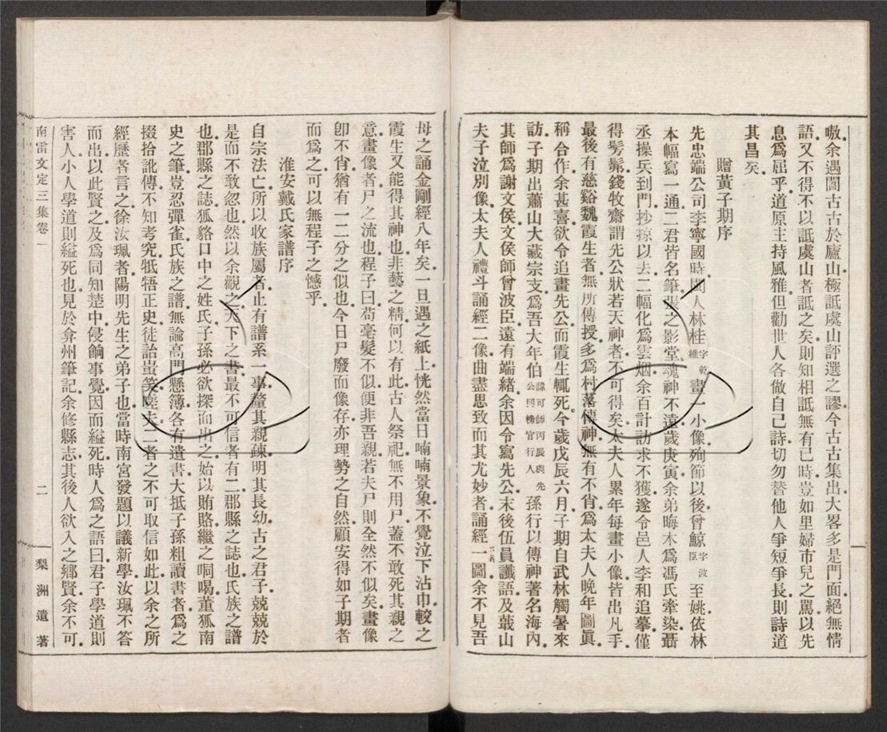 噉余遇閩古古於廬山極詆虞山評選之謬今古古集出大畧多是門面絕無情
語又不得不以詆虞山者詆之矣則知相詆無有已時豈如里婦市兒之罵以先
息爲屈乎道原主持風雅但勸世人各做自己詩切勿替他人爭短爭長則詩道
其昌矣
贈黃子期序
先忠端公司李寧國時門人林桂字乾維畫一小像殉節以後曾鯨字波臣至姚依林
本幅寫一通二君皆名筆張之影堂魂神不遠歲庚寅余弟晦木爲馮氏牽染聶
丞操兵到門抄掠以去二幅化爲雲烟余百計訪求不獲遂令邑人李和追摹僅
得髣髴錢牧齋謂先公狀若天神者不可得矣太夫人累年每畫小像皆出凡手
最後有慈谿魏霞生者無所傳授多爲村落傳神無有不肖爲太夫人晚年圖眞
稱合作余甚喜欲令追畫先公而霞生輒死今歲戊辰六月子期自武林觸暑來
訪子期出蕭山大藏宗支爲吾大年伯諱可師丙辰與先公同榜官行人孫行以傳神著名海內
其師爲謝文侯文侯師曾波臣遠有端緒余因令寫先公末後伍員讖語及蕺山
夫子泣別像太夫人禮斗誦經二像曲盡思致而其尤妙者誦經一圖余不見吾
母之誦金剛經八年矣一旦遇之紙上恍然當日喃喃景象不覺泣下沾巾較之
霞生又能得其神也非藝之精何以有此古人祭祀無不用尸蓋不敢死其親之
意畫像者尸之流也程子曰苟毫髮不似便非吾親若夫尸則全然不似矣畫像
卽不肖猶有一二分之似也今日尸廢而像存亦理勢之自然顧安得如子期者
而爲之可以無程子之憾乎
淮安戴氏家譜序
自宗法亡所以收族屬者止有譜系一事釐其親疎明其長幼古之君子兢兢於
是而不敢忽也然以余觀之天下之書最不可信者有二郡縣之誌也氏族之譜
也郡縣之誌狐貉口中之姓氏子孫必欲探而出之始以賄賂繼之呵喝董狐南
史之筆豈忍彈雀氏族之譜無論高門懸簿各有遺書大抵子孫粗讀書者爲之
掇拾訛傳不知考究牴牾正史徒詒嗤笑嗟夫二者之不可取信如此以余之所
經歷者言之徐汝珮者陽明先生之弟子也當時南宮發題以議新學汝珮不答
而出以此賢之及爲同知楚中侵餉事覺因而縊死時人爲之語曰君子學道則
害人小人學道則縊死也見於弇州筆記余修縣志其後人欲入之鄉賢余不可
南雷文定三集卷一
二
梨洲遺著